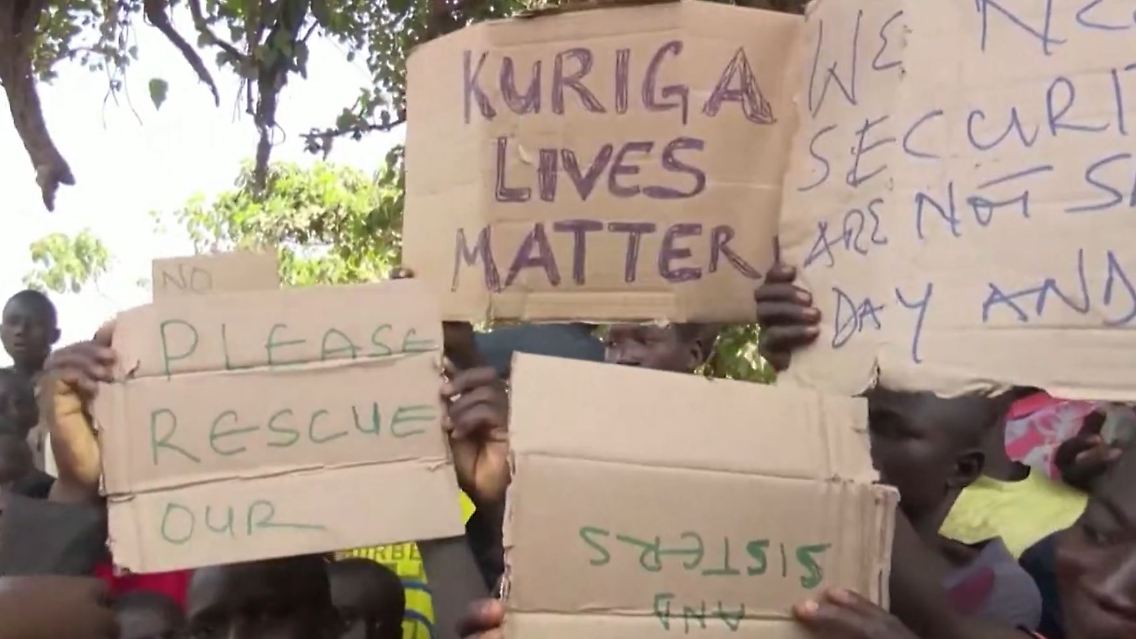 KURIGA
LIVES
MATTER
WE NE
SECURIT
ARE NOT SA
DAY AND
NO
PLEASE
RESCUE
OUR
AND
SISTERS